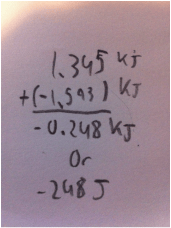 1.345 KJ
+(-1,593) KJ
-0.248 KJ
Or
-248 J